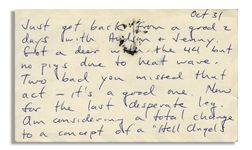 Oct 31
Just got back from a good 2
days with Hudson + Jenny.
Got a deer with the .44 but
no pigs due to heat wave.
Two bad you missed that
act - it's a good one. Now
for the last desperate leg.
Am considering a total change
to a concept of a "Hell Angels